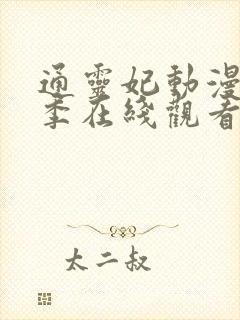 通靈妃動漫
季在綫觀看
太二叔